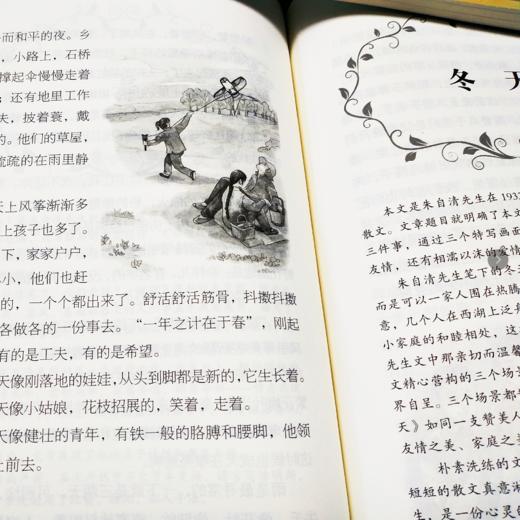 而和平的夜。乡
，小路上，石桥
撑起伞慢慢走着
；还有地里工作
夫，披着蓑，戴
的。他们的草屋，
稀疏疏的在雨里静
天上风筝渐渐多
上孩子也多了。
下，家家户户，
小小，他们也赶
的，一个个都出来了。舒活舒活筋骨，抖擞抖擞
各做各的一份事去。“一年之计在于春”，刚起
有的是工夫，有的是希望。
天像刚落地的娃娃，从头到脚都是新的，它生长着。
天像小姑娘，花枝招展的，笑着，走着。
天像健壮的青年，有铁一般的胳膊和腰脚，他领
上前去。
冬 天
本文是朱自清先生在193
散文。文章题目就明确了本文
三件事，通过三个特写画面
友情，还有相濡以沫的爱情
朱自清先生笔下的冬天
而是可以一家人围在热腾
意，几个人在西湖上泛舟
小家庭的和睦相处，这
先生文中那亲切而温馨
文精心营构的三个场景
界自呈。三个场景都
天》如同一支赞美人
友情之美、家庭之美
朴素洗练的文
短短的散文真意
生，是一份心灵的